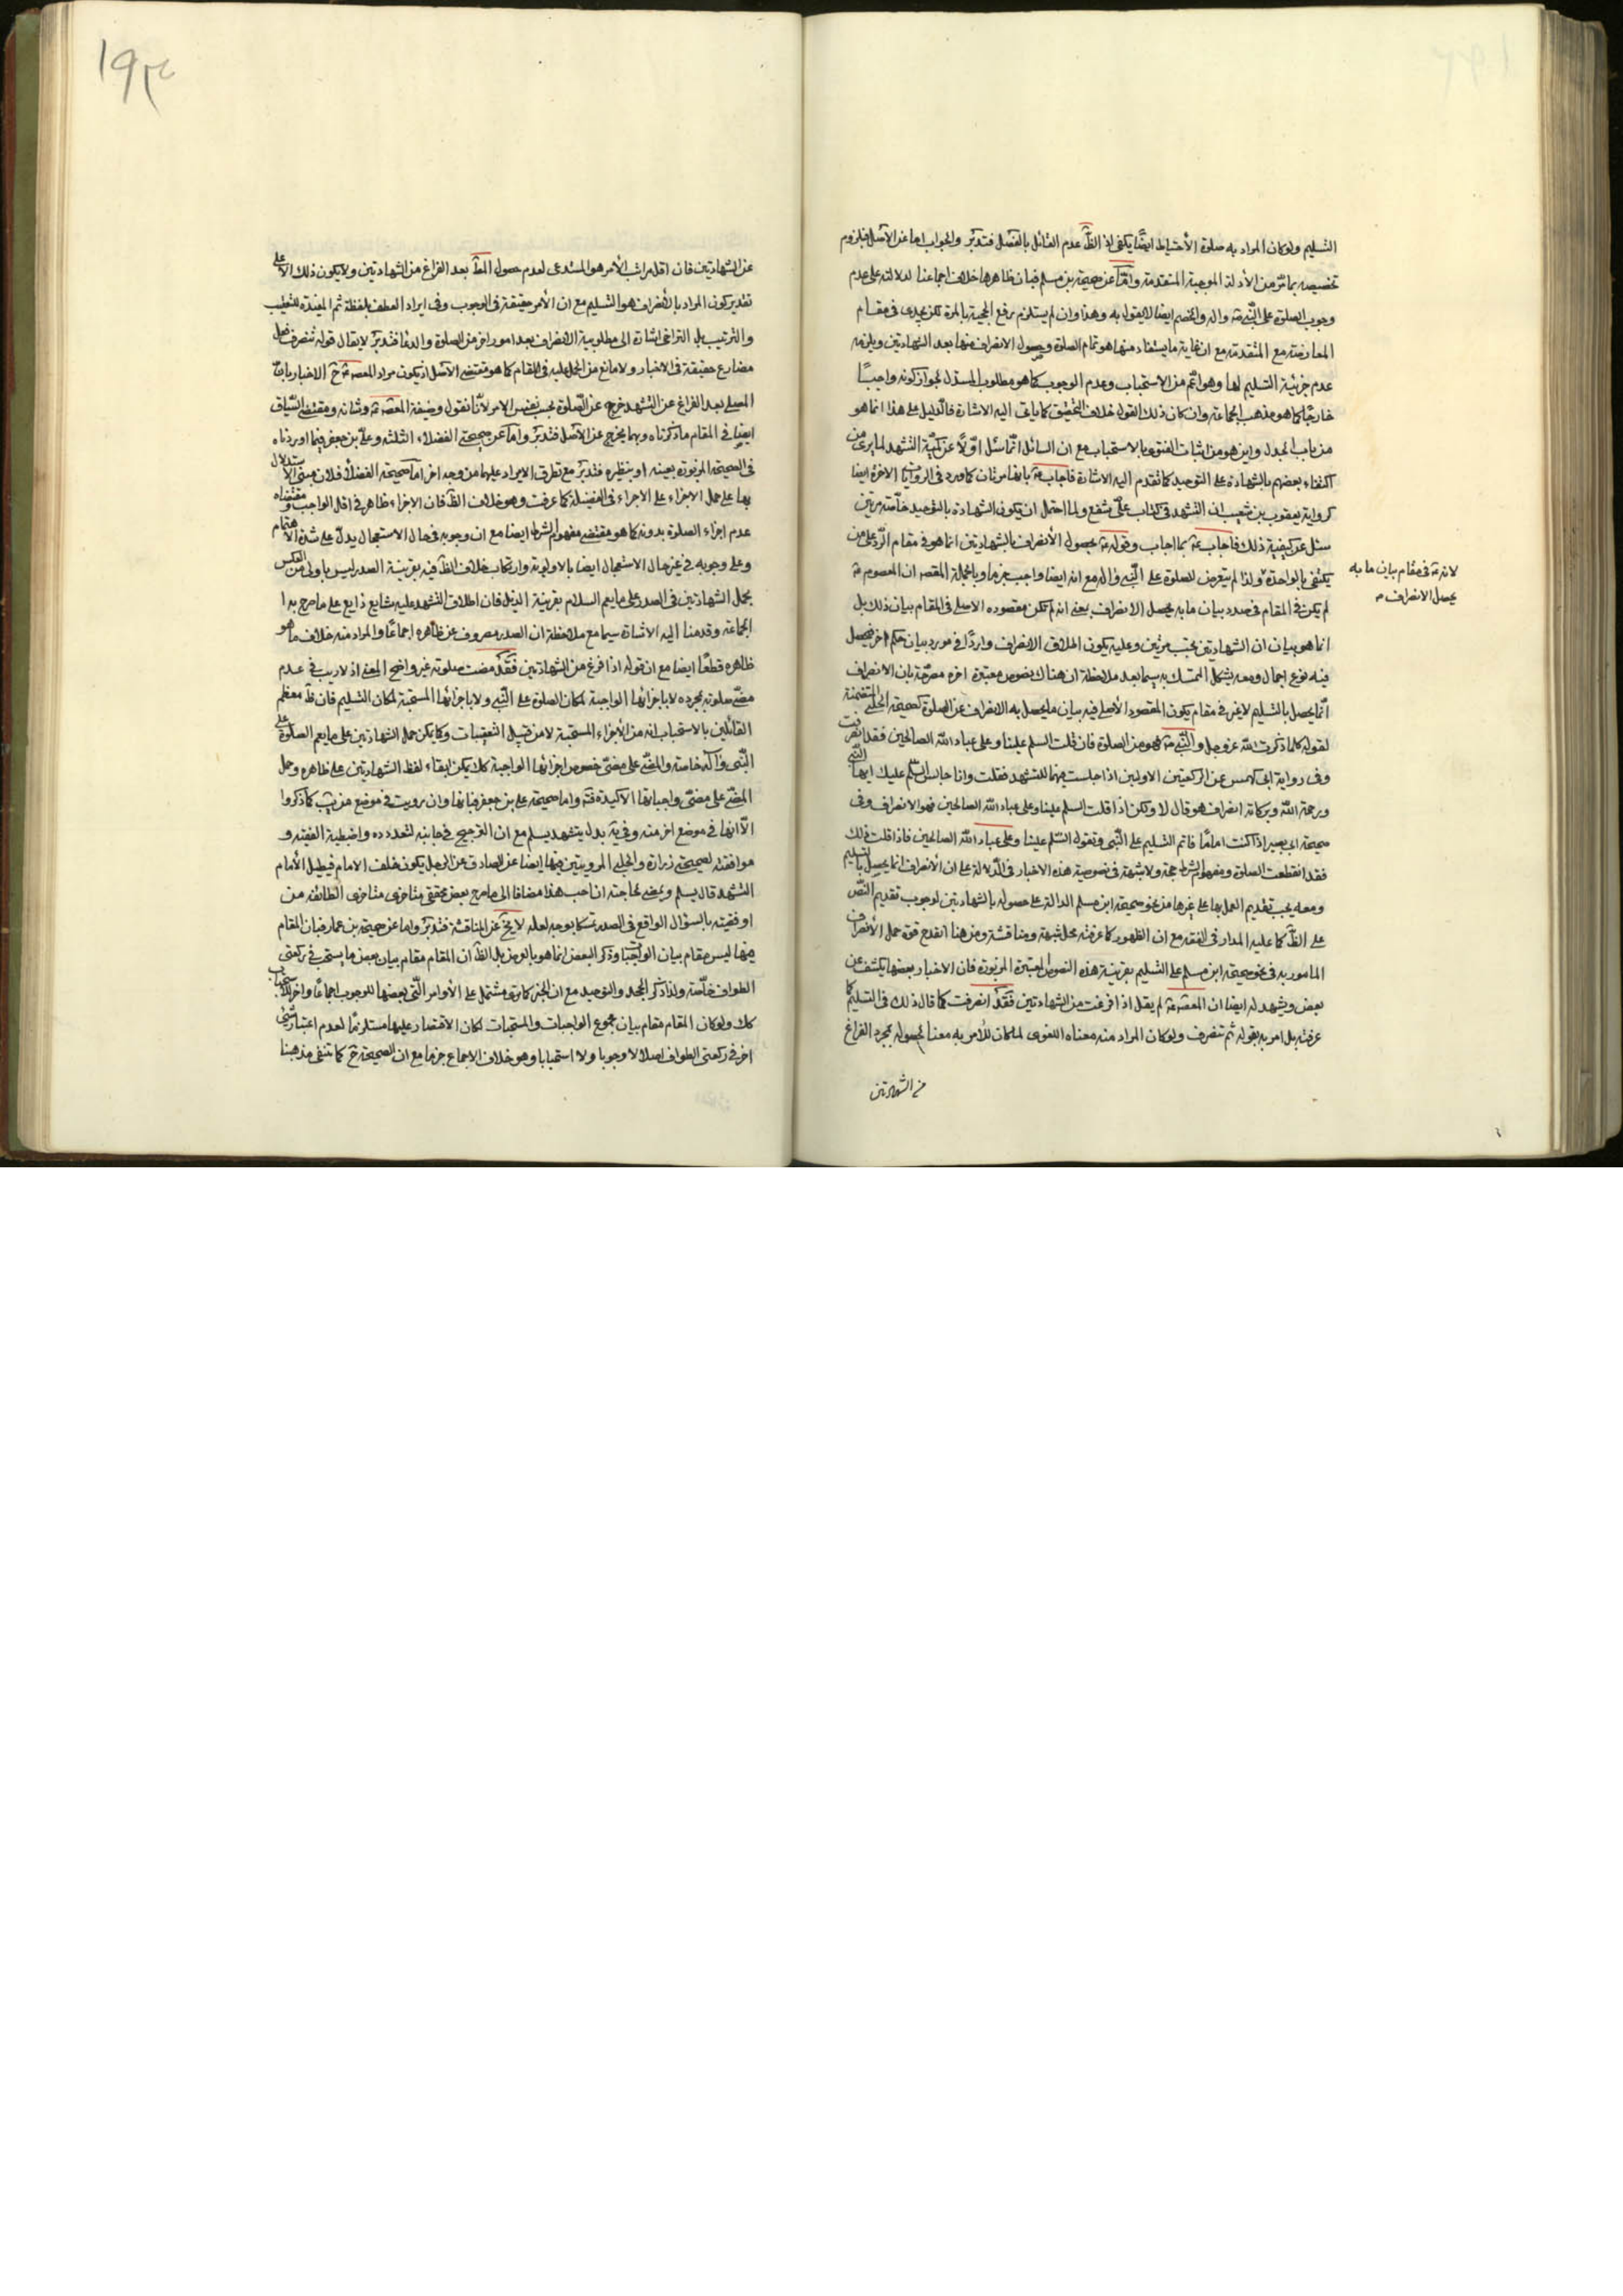 التسليم ولو كان المراد به صلوة الأحتياط ايضا يكفى اذ الظّ عدم القائل بالفصل فتدبّر والجواب اما عن الاصل فبلزوم
تخصيصه بما مرّ من الأدلة الموجبة المتقدمة وامّا عن صحيحة بن مسلم فبان ظاهرها خلاف اجماعنا لدلالته على عدم
وجوب الصلوة على النّبى صّ واله والخصم ايضا لا يقول به وهذا وان لم يستلزم رفع الحجية بالمرة لكن يجدى فى مقام
المعارضة مع المتقدمة مع ان غاية ما يستفاد منها هو تمام الصلوة وحصول الانصراف منها بعد الشهادتين ويلزمه
عدم جزئية التسليم لها وهو اعّم من الاستحباب وعدم الوجوب كما هو مطلوب المستدل لجواز كونه واجبًا
خارجًا كما هو مذهب الجماعة وان كان ذلك القول خلاف التحقيق كما ياتى اليه الاشارة فالدليل على هذا انما هو
من باب الجدل واين هو من اثبات الفتوى بالاستحباب مع ان السائل انّما سئل اوّلًا عن كميّة التشهد لما يرى من
اكتفاء بعضهم بالشهادة على التوحيد كما تقدم اليه الاشارة فاجاب عّ بانها مرتان كما ورد فى الروايات الاخرة ايضا
كرواية يعقوب بن شعيب ان التشهد فى كتاب علىّ شفع ولما احتمل ان يكون الشهادة بالتوحيد خاّصة مرتين
سئل عن كيفية ذلك فاجاب عّ بما اجاب وقوله عّ بحصول الأنصراف بالشهادتين انما هو فى مقام الرّد على من
يكتفى بالواحدة ولذا لم يتعرض للصلوة على النّبى واله مع انه ايضا واجب جزما وبالجملة المقصه ان المعصوم عّ
لانه عّ فى مقام بيان ما به
يحصل الانصراف م
لم يكن فى المقام فى صدد بيان ما به يحصل الانصراف بمعنى انه لم تكن مقصوده الاصلى فى المقام بيان ذلك بل
انما هو بيان ان الشهادتين تجب مرتين وعليه يكون اطلاق الانصراف واردًا فى مورد بيان حكم اخر فيحصل
فيه نوع اجمال ومعه يشكل التمسك به سيما بعد ملاحظة ان هناك نصوص معتبرة اخره مصرّحة بان الانصراف
انّما يحصل بالتسليم لا غير فى مقام يكون المقصود الأصلى فيه بيان ما يحصل به الانصراف عن الصلوة كصحيحة الحلبى المتضمنة
لقوله كلما ذكرت اللّه عز وجل والنّبى صّ فهو من الصلوة فان قلت السلم علينا وعلى عباد اللّه الصالحين فقد انصرفت
وفى رواية ابى كهمس عن الركعتين الاولين اذا جلست فيهما للتشهد فقلت وانا جالس السّلم عليك ايها النّبى
ورحمة اللّه وبركاته انصراف هو قال لا ولكن اذا قلت السلم علينا وعلى عباد اللّه الصالحين فهو الانصراف وفى
صحيحة ابى بصير اذا كنت امامًا فانّما التسليم على النّبى وتقول السّلم علينا وعلى عباد اللّه الصالحين فاذا قلت ذلك
فقد انقطعت الصلوة ومفهوم الشرط حجة ولا شبهة فى نصوصية هذه الاخبار فى الدّلالة على ان الأنصراف انما يحصل بالتسليم
ومعه يجب تقديم العمل بها على غيرها من نحو صحيحة ابن مسلم الدالة على حصوله بالشهادتين لوجوب تقديم النّص
على الظّ كما عليه المدار فى الفقه مع ان الظهور كما عرفته محل شبهة ومناقشة ومن هنا انقدح قوة حمل الأنصراف
المامور به فى نحو صحيحة ابن مسلم على التسليم بقرينة هذه النصوص المعتبرة المزبورة فان الاخبار بعضها يكشف عن
بعض ويشهد له ايضا ان المعصّه عّ لم يقل اذا فرغت من الشهادتين فَقَدْ انصرفت كما قال ذلك فى التسليم كما
عرفته بل امر به بقوله ثم تنصرف ولو كان المراد منه معناه اللغوى لما كان للامر به معنا لحصوله بمجرد الفراغ
من الشهادتين
١٩٣
عن الشهادتين فان اقل مراتب الأمر هو المستدعى لعدم حصول المطّ بعد الفراغ من الشهادتين ولا يكون ذلك الا على
تقدير كون المراد بالأنصراف هو التسليم مع ان الأمر حقيقة فى الوجوب وفى ايراد العطف بلفظة ثم المفيدة للتعقيب
والترتيب بل التراخى اشارة الى مطلوبية الانصراف بعد امور اخر من الصلوة والدعا فتدبّر لا يقال قوله تنصرف فعل
مضارع حقيقة فى الاخبار ولا مانع من الحمل عليه فى المقام كما هو مقتضى الاصل اذ يكون مراد المعصه عّ حّ الاخبار بانّ
المصلى بعد الفراغ عن التشهد خرج عن الصّلوة بحسب نفس الامر لأنا نقول وضيفة المعصّه عّ وشانه ومقتضى السّياق
ايضا فى المقام ما ذكرناه وبهما يخرج عن الاصل فتدبّر وامّا عن صحيحتى الفضلاء الثلثة وعلىّ بن جعفر فبما اوردناه
فى الصحيحة المزبورة بعينه او بنظيره فتدبّر مع تطرق الايراد عليهما من وجه اخر امّا صحيحة الفضلأ فلان مبنى الاستدلال
بها على حمل الاجزاء على الاجزاء فى الفضيلة كما عرفت وهو خلاف الظّ فان الاجزاء ظاهر فى اقل الواجب ومقتضاه
عدم اجزاء الصلوة بدونه كما هو مقتضى مفهوم الشرط ايضا مع ان وجوبه فى حال الاستعجال يدلّ على شدة الاهتمام
وعلى وجوبه فى غير حال الاستعجال ايضا بالاولوية وارتكاب خلاف الظّ فيه بقرينة الصدر ليس باولى من العكس
بحمل الشهادتين فى الصدر على ما يعم السلام بقرينة الذيل فان اطلاق التشهد عليه شايع ذايع على ما صرح به ا
لجماعة وقد منا اليه الاشارة سيما مع ملاحظة ان الصدر مصروف عن ظاهره اجماعًا والمراد منه خلاف ما هو
ظاهره قطعًا ايضا مع ان قوله اذا فرغ من الشهادتين فَقَدْ مضت صلوته غير واضح المعنى اذ لا ريب فى عدم
مضّى صلوته بمجرده لا باجزائها الواجبة لمكان الصلوة على النّبى ولا باجزائها المستحبة لمكان التسليم فان ظّ معظم
القائلين بالاستحباب انه من الأجزاء المستحبة لا من قبيل التعقيبات وكما يكن حمل الشهادتين على ما يعم الصلوة على
النّبى وآله خاصة والمضّى على مضىّ خصوص اجزائها الواجبة كك يمكن ابقاء لفظ الشهادتين على ظاهره وحمل
المضّى على مضىّ واجباتها الأكيدة فتّه واما صحيحة على بن جعفر فبانها وان رويت فى موضع من يّب كما ذكروا
الاّ انها فى موضع اخر منه وفى يّه بدل يتشهد يسلم مع ان الترجيح فى جانبه لتعدده واضبطية الفقيه و
موافقته لصحيحتى زرارة والحلبى المرويتين فيهما ايضا عن الصادق عن الرجل يكون خلف الامام فيطيل الأمام
التشهد قال يسلم ويمضى لحاجته ان احب هذا مضافا الى ما صرح بعض محققى متاخرى متاخرى الطائفة من
اوفقيته بالسؤال الواقع فى الصدر تمسكا بوجه لعله لا يخّ عن المناقشة فتدبّر واما عن صحيحة بن عمار فبان المقام
فيها ليس مقام بيان الواجبات وذكر البعض انما هو بالعرض بل الظّ ان المقام مقام بيان بعض ما يستحب فى ركعتى
الطواف خاّصة ولذا ذكر الجحد والتوحيد مع ان الخبر كما ترى مشتمل على الأوامر الّتى بعضها للوجوب اجماعًا واخر للاستحباب
كك ولو كان المقام مقام بيان مجموع الواجبات والمستحبات لكان الأقتصار عليها مستلزمًا لعدم اعتبار شىء
اخر فى ركعتى الطواف اصلا لا وجوبا ولا استحبابا وهو خلاف الاجماع جزما مع ان الصحيحة حّ كما تنفى مذهبنا